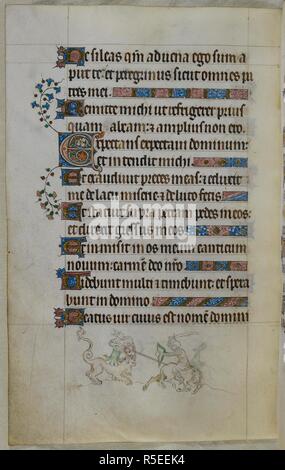 Ne sileas qm̄ aduena ego sum a
put te: et peregrinus sicut omnes pa
tres mei.
Remitte michi ut refrigerer prius
quam abeam: ⁊ amplius non ero.
Expectans expectaui dominum:
et intendit michi.
Et exaudiuit preces meas: ⁊ eduxit
me de lacu miserie ⁊ de luto fecis
Et statuit supra petram pedes meos:
et direxit gressus meos
Et inmisit in os meum canticum
nouum: carmen deo nr̄o
Uidebunt multi ⁊ timebunt: et spera
bunt in domino
Beatus uir cuius est nomen domini
alamy
Image ID: R5EEK4
www.alamy.com